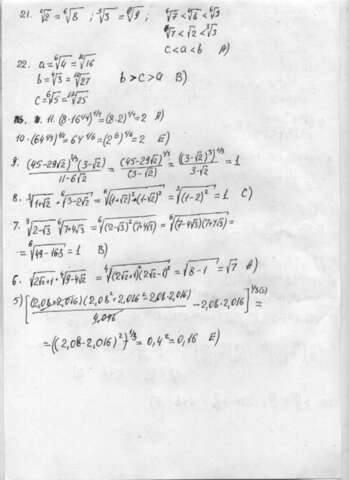 21. √2 = ⁶√8 ; ³√3 = ⁶√9 ; ⁶√7 < ⁶√8 < ⁶√3
⁶√7 < √2 < ³√3
c < a < b A)
22. a = ⁶√4 = ¹²√16
b = ⁴√3 = ¹²√27 b > c > a B)
c = ⁶√5 = ¹²√25
11. (8·16^1/4)^1/4 = (8·2)^1/4 = 2 A)
10. (64^1/3)^1/2 = 64^1/6 = (2^6)^1/6 = 2 E)
9. (45-29√2)^1/3 (3-√2) / 11-6√2 = (45-29√2)^1/3 / (3-√2) = ((3-√2)^3)^1/3 / 3-√2 = 1
8. ³√1+√2 ⁶√3-2√2 = ⁶√(1+√2)²·(1-√2)² = ³√(1-2)² = 1 C)
7. ³√2-√3 ⁶√7+4√3 = ⁶√(2-√3)²(7+4√3) = ⁶√(7-4√3)(7+4√3) =
= ⁶√49-16·3 = 1 B)
6. √2√2+1 · ⁴√9-4√2 = ⁴√(2√2+1)²(2√2-1)² = √8-1 = √7 A)
5) [(2,08+2,016)(2,08²+2,016²-2,08·2,016) / 4,096 - 2,08·2,016]^1/3(2) =
= ((2,08-2,016)²)^1/3 = 0,4² = 0,16 E)